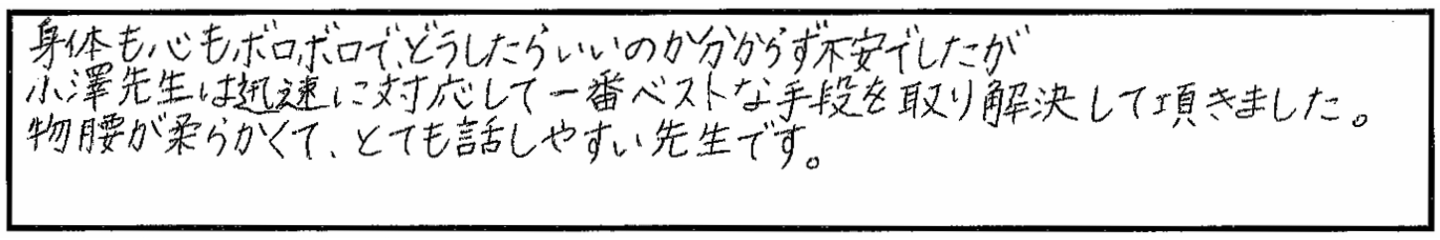 身体も心もボロボロで、どうしたらいいのか分からず不安でしたが
小澤先生は迅速に対応して一番ベストな手段を取り解決して頂きました。
物腰が柔らかくて、とても話しやすい先生です。